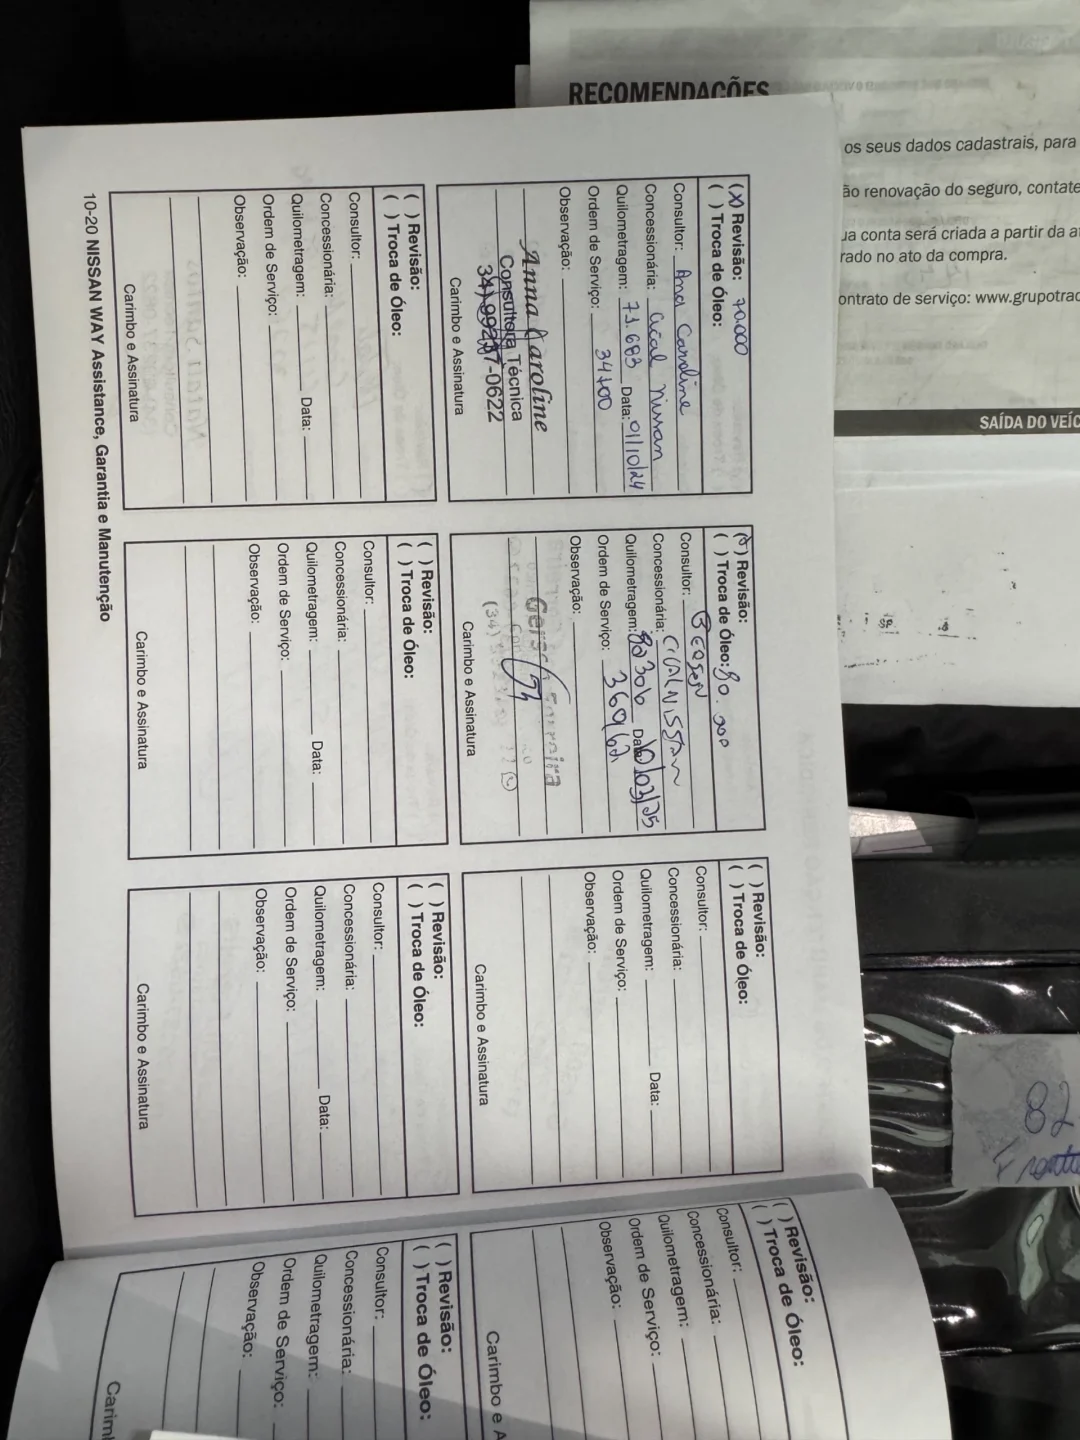 RECOMENDAÇÕES
os seus dados cadastrais, para
ão renovação do seguro, contate
ua conta será criada a partir da a
rado no ato da compra.
ontrato de serviço: www.grupotrac
SAÍDA DO VEÍC
82
(X) Revisão: 70.000
( ) Troca de Óleo:
Consultor: Ana Caroline
Concessionária: Cical Nissan
Quilometragem: 71.683 Data: 01/10/24
Ordem de Serviço: 34700
Observação:
Anna Karoline
Consultora Técnica
34) 99237-0622
Carimbo e Assinatura
Revisão:
( ) Troca de Óleo: 80.000
Consultor:
Concessionária: CICAL NISSAN
Quilometragem: 80306 Data: 10/03/25
Ordem de Serviço: 36962
Observação:
Carimbo e Assinatura
( ) Revisão:
( ) Troca de Óleo:
Consultor:
Concessionária:
Quilometragem: Data:
Ordem de Serviço:
Observação:
Carimbo e Assinatura
( ) Revisão:
( ) Troca de Óleo:
Consultor:
Concessionária:
Quilometragem: Data:
Ordem de Serviço:
Observação:
Carimbo e Assinatura
( ) Revisão:
( ) Troca de Óleo:
Consultor:
Concessionária:
Quilometragem: Data:
Ordem de Serviço:
Observação:
Carimbo e Assinatura
( ) Revisão:
( ) Troca de Óleo:
Consultor:
Concessionária:
Quilometragem: Data:
Ordem de Serviço:
Observação:
Carimbo e Assinatura
10-20 NISSAN WAY Assistance, Garantia e Manutenção
( ) Revisão:
( ) Troca de Óleo:
Consultor:
Concessionária:
Quilometragem:
Ordem de Serviço:
Observação:
Carimbo e A
( ) Revisão:
( ) Troca de Óleo:
Consultor:
Concessionária:
Quilometragem:
Ordem de Serviço:
Observação:
Carim